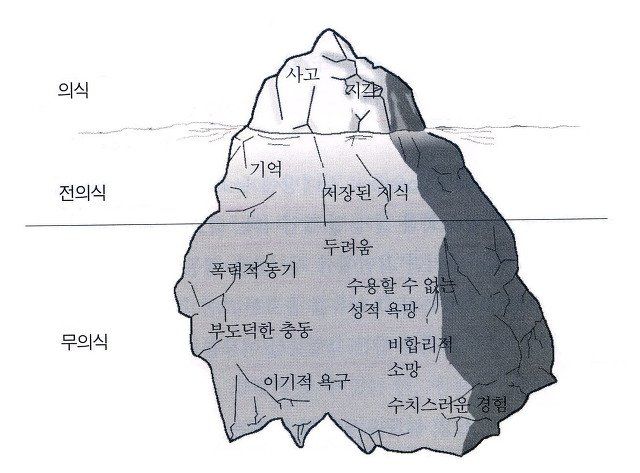 의식
사고
지각
전의식
기억
저장된 지식
무의식
두려움
폭력적 동기
수용할 수 없는
성적 욕망
부도덕한 충동
비합리적
소망
이기적 욕구
수치스러운 경험